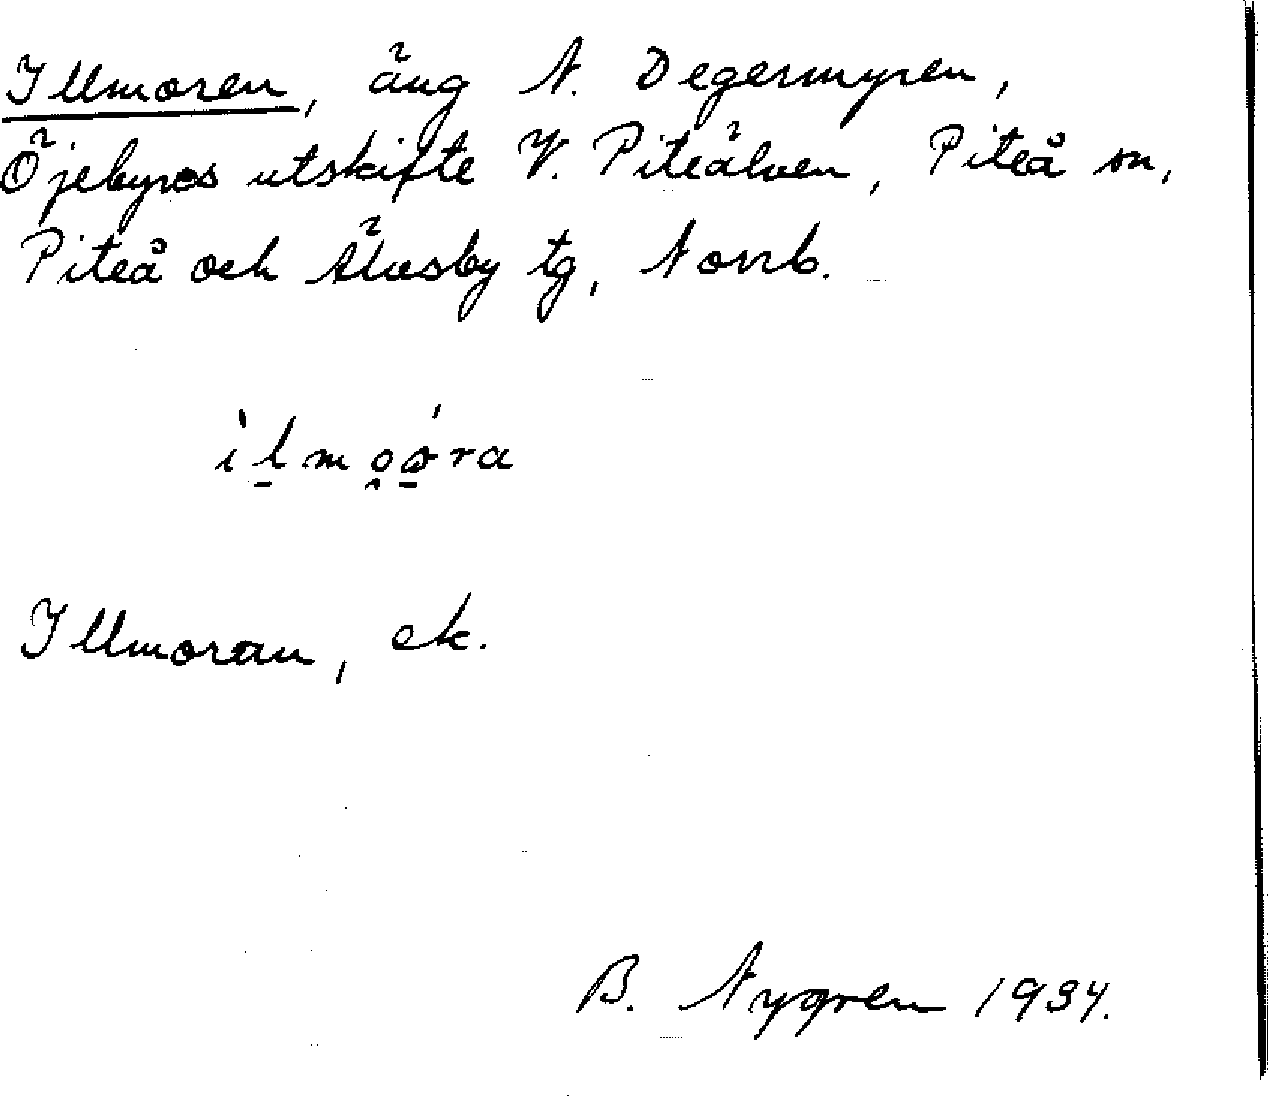 Illmoren, äng N. Degermyren,
Öjebyns utskifte V. Piteälven, Piteå sn,
Piteå och Älvsby tg, Norrb.
ìlmo̯ǫ́ra
Illmoran, ek.
B. Nygren 1934.